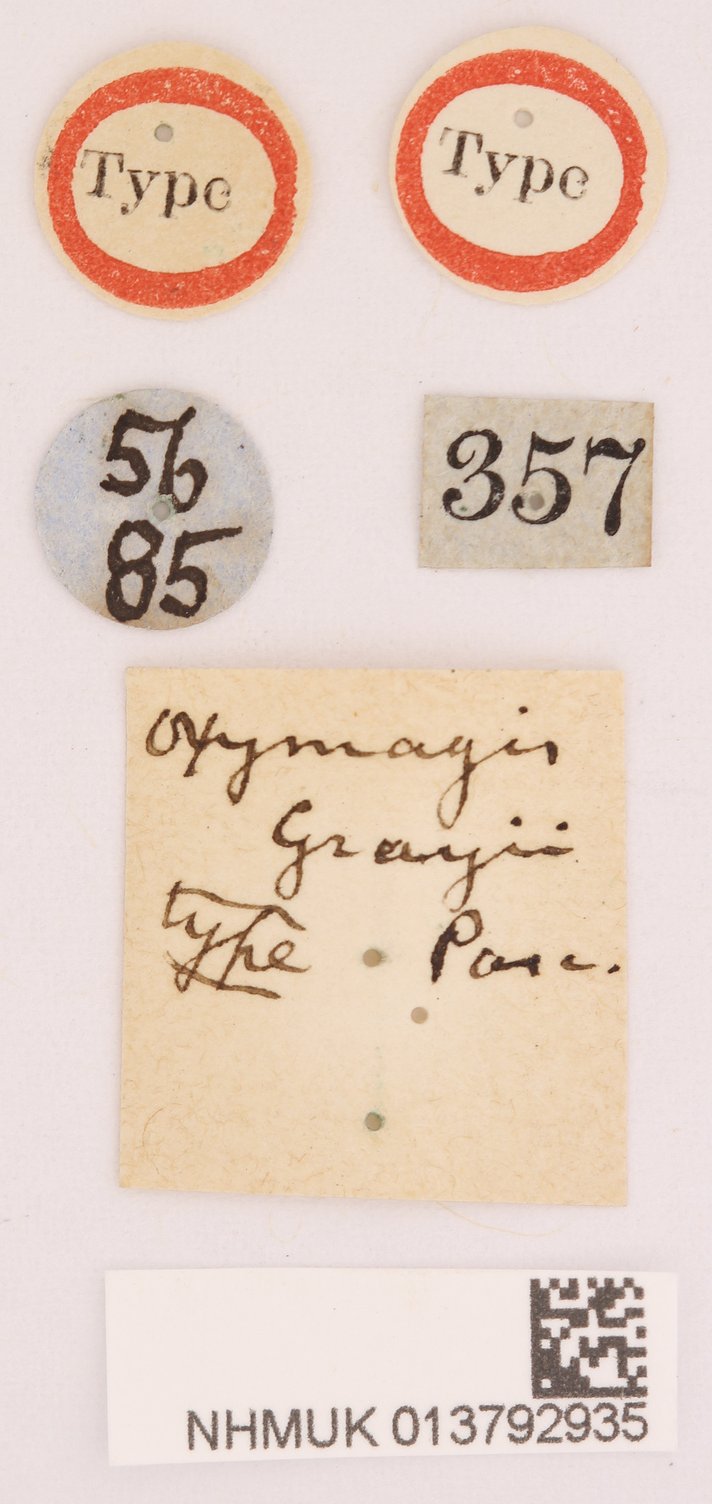 Type
Type
56
85
357
Oxymagis
Grayii
type Pasc.
NHMUK 013792935